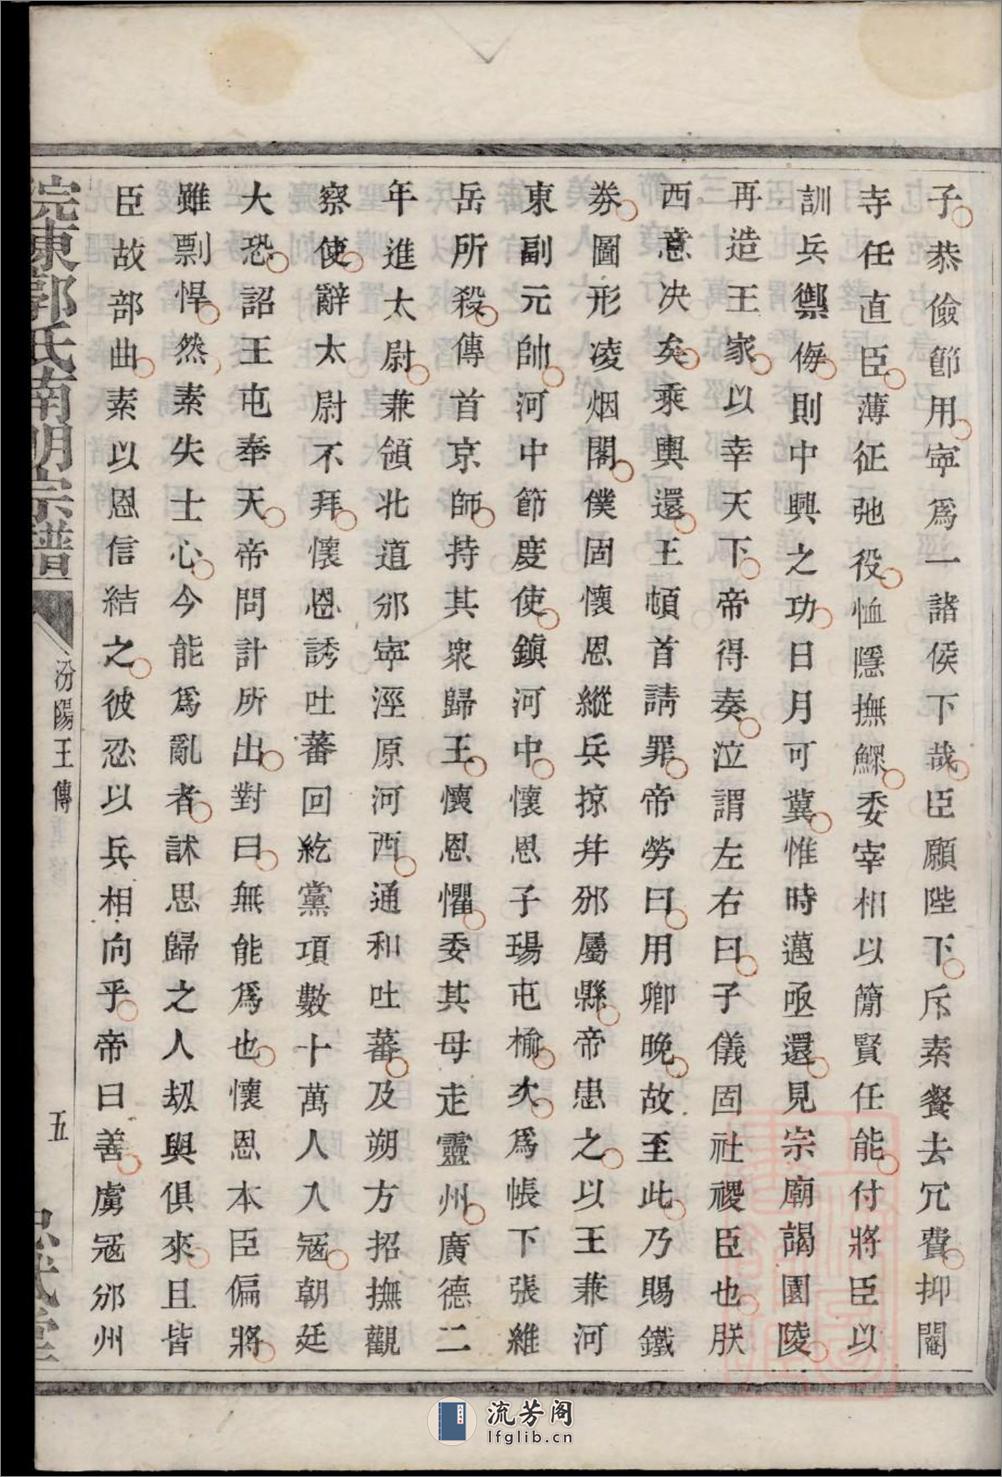 子恭儉節用寧爲一諸侯下哉臣願陛下斥素餐去冗費抑閹
寺任直臣薄征弛役恤隱撫鰥委宰相以簡賢任能付將臣以
訓兵禦侮則中興之功日月可冀惟時邁亟還見宗廟謁園陵
再造王家以幸天下帝得奏泣謂左右曰子儀固社稷臣也朕
西意决矣乘輿還王頓首請罪帝勞曰用卿晚故至此乃賜鐵
券圖形凌烟閣僕固懷恩縱兵掠幷邠屬縣帝患之以王兼河
東副元帥河中節度使鎮河中懷恩子瑒屯榆次爲帳下張維
岳所殺傳首京師持其衆歸王懷恩懼委其母走靈州廣德二
年進太尉兼領北道邠寧涇原河西通和吐蕃及朔方招撫觀
察使辭太尉不拜懷恩誘吐蕃回紇黨項數十萬人入冦朝廷
大恐詔王屯奉天帝問計所出對曰無能爲也懷恩本臣偏將
雖剽悍然素失士心今能爲亂者訹思歸之人刧與俱來且皆
臣故部曲素以恩信結之彼忍以兵相向乎帝曰善虜冦邠州
東郭氏南明宗譜
汾陽王傳
五
流芳阁
lfglib.cn